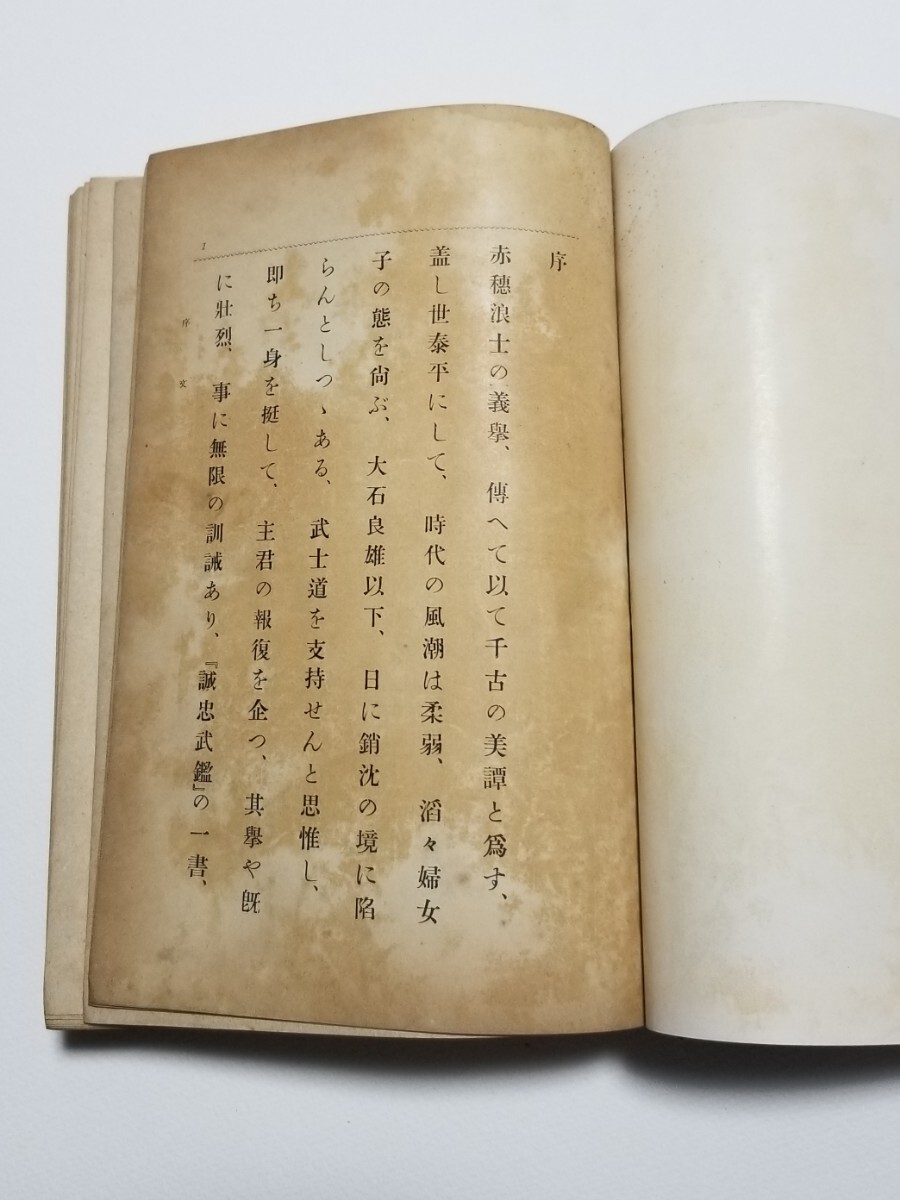 序
赤穗浪士の義擧、傳へて以て千古の美譚と爲す、
蓋し世泰平にして、時代の風潮は柔弱、滔々婦女
子の態を尙ぶ、大石良雄以下、日に銷沈の境に陷
らんとしつゝある、武士道を支持せんと思惟し、
卽ち一身を挺して、主君の報復を企つ、其擧や旣
に壯烈、事に無限の訓誡あり、『誠忠武鑑』の一書、
序文
1